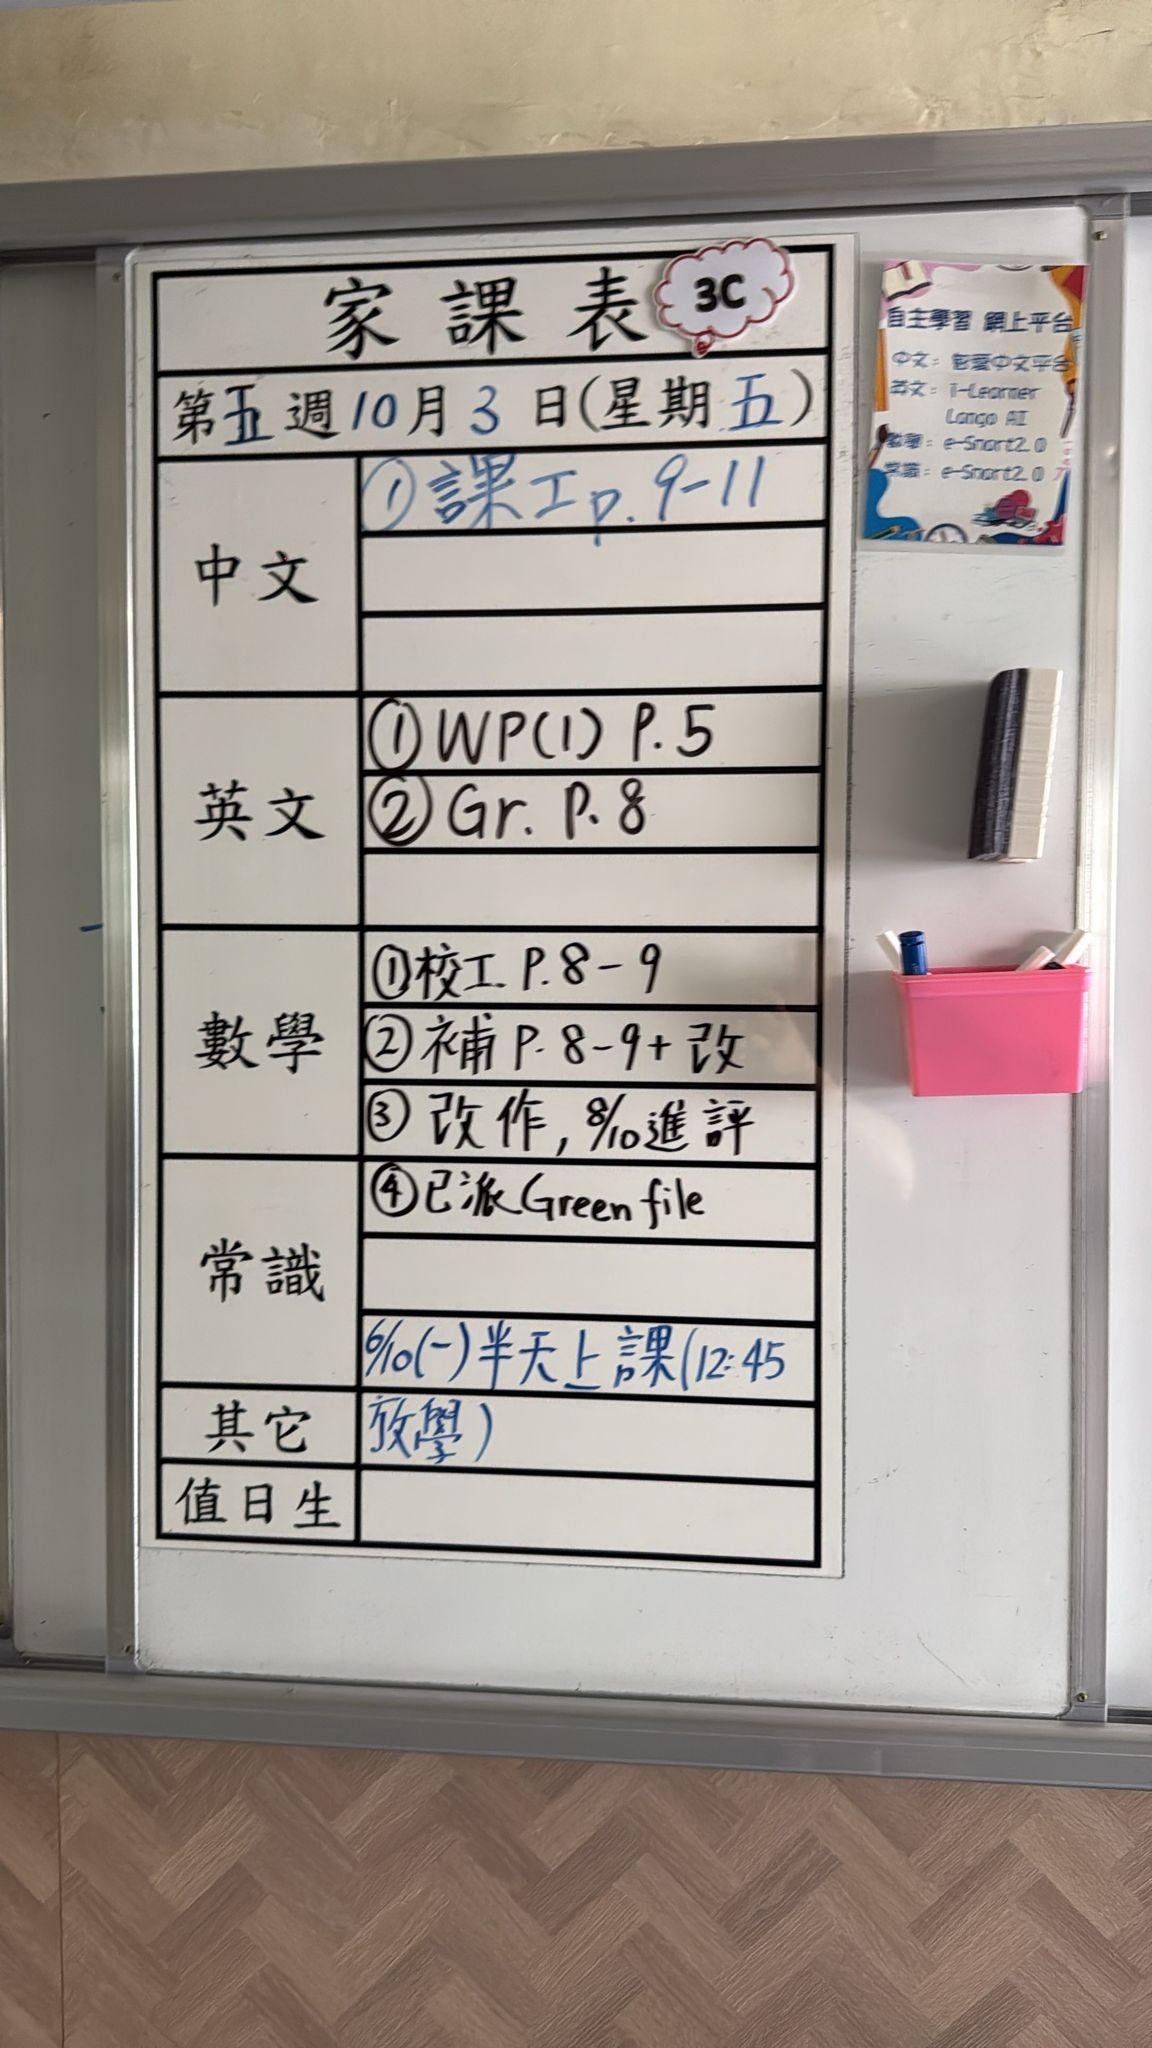 家課表
3C
第五週10月3日(星期五)
中文
①課工p.9-11
英文
①WP(1) P.5
②Gr. P.8
數學
①校工.P.8-9
②補P.8-9+改
③改作,8/10進評
常識
④已派Green file
6/10(一)半天上課(12:45
其它
放學)
值日生
自主學習 網上平台
中文: 中文平台
英文: i-Learner
Lango AI
數學: e-Smart2.0
常識: e-Smart2.0